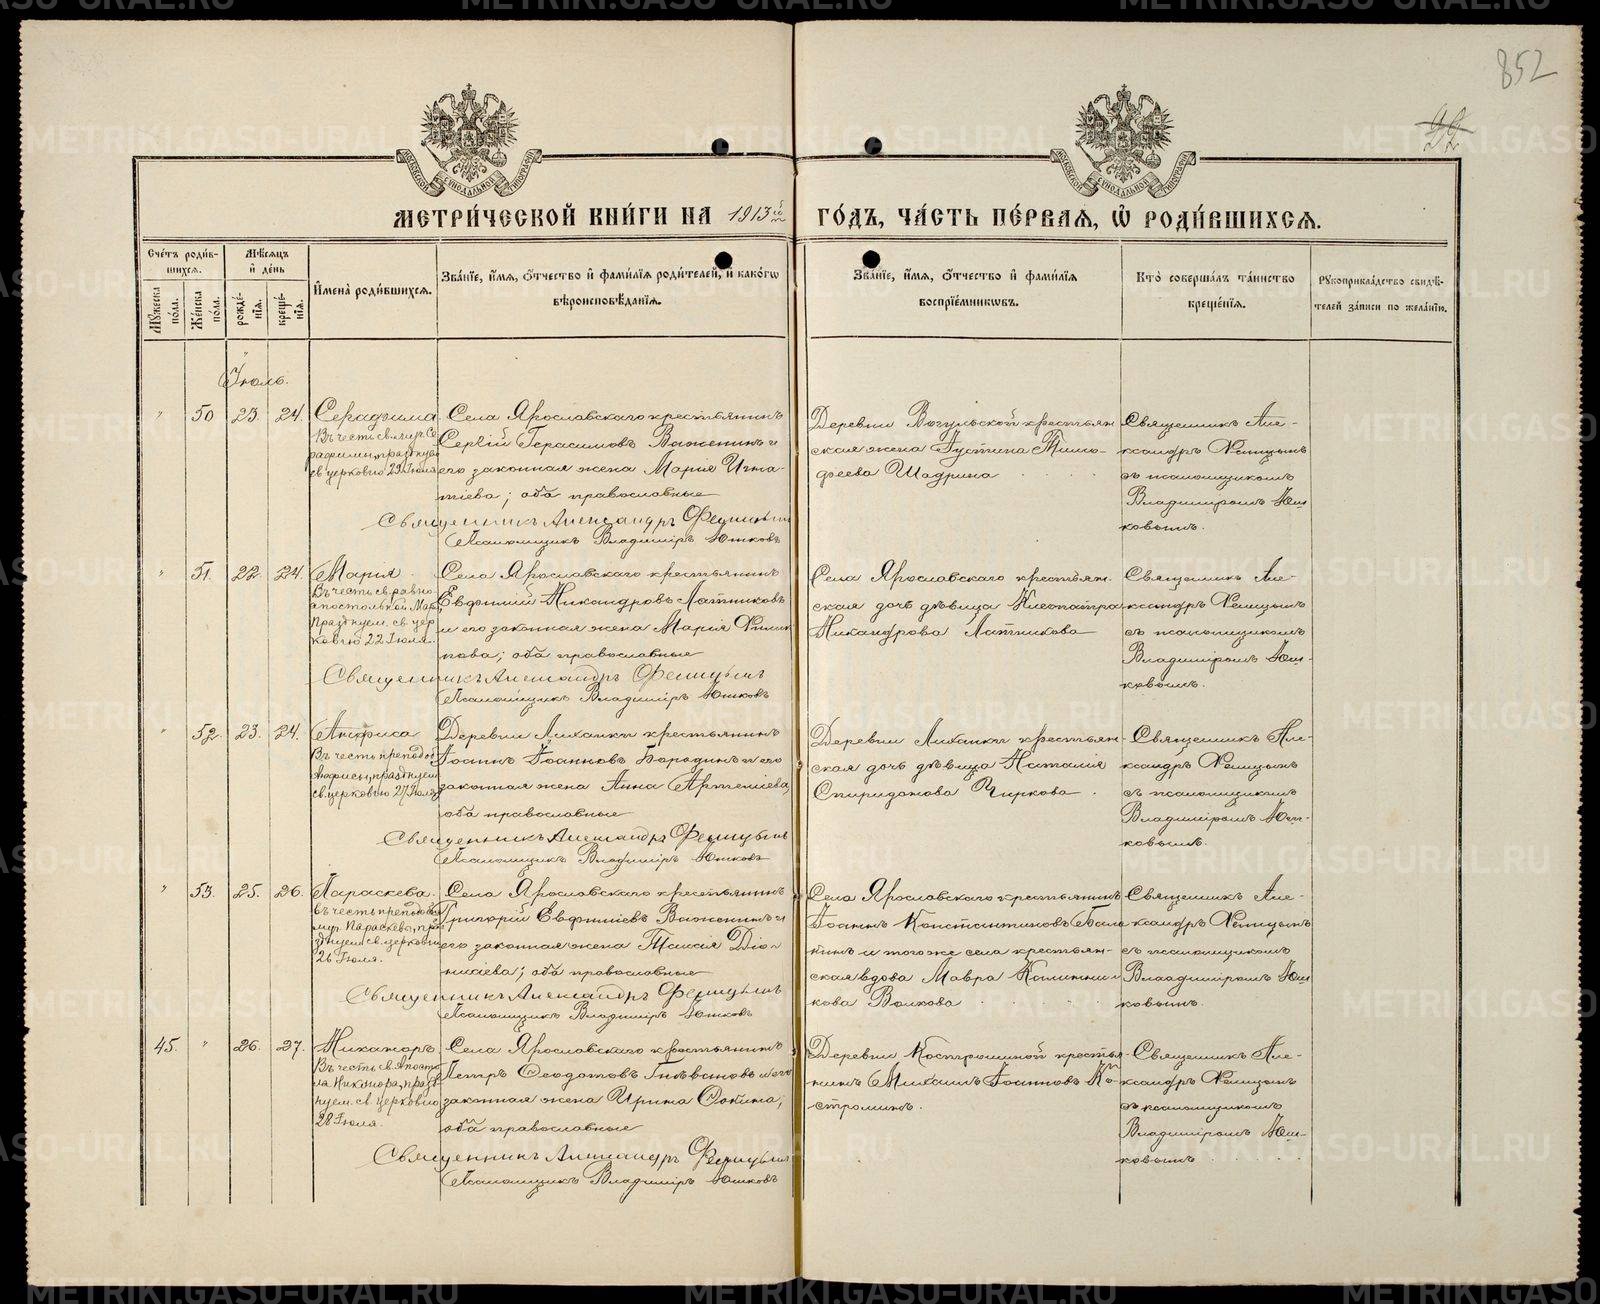 852
22
МОСКОВСКОЙ СѴНОДАЛЬНОЙ ТИПОГРАФІИ
МЕТРИ́ЧЕСКОЙ КНИ́ГИ НА 1913й ГО́ДЪ, ЧА́СТЬ ПЕ́РВАЯ, Ѡ҆ РОДИ́ВШИХСЯ.
Сче́тъ роди́в-
шихся.
Му́жеска по́ла.
Же́нска по́ла.
Мѣ́сяцъ
и҆ де́нь
рожде́-
нїя.
креще́-
нїя.
И҆мена̀ роди́вшихся.
Зва́нїе, и҆́мя, ѻ҆́тчество и҆ фами́лїя роди́телей, и҆ како́гѡ
вѣроисповѣ́данїя.
Зва́нїе, и҆́мя, ѻ҆́тчество и҆ фами́лїя
воспрїе́мникѡвъ.
Кто̀ соверша́лъ та́инство
креще́нїя.
Рꙋкоприкла́дство свидѣ́-
телей за́писи по жела́нїю.
Іюль.
" 50 23. 24. Серафима
Въ честь св. муч. Се
рафимы, празднуем
св. церковію 29 Іюля
Села Ярославскаго крестьянинъ
Сергій Герасимовъ Важенинъ и
его законная жена Марія Игна-
тіева; оба православные
Священникъ Александръ Феницынъ
Псаломщикъ Владиміръ Юшковъ
Деревни Вогульской крестьян
ская жена Густина Тимо-
феева Шадрина
Священникъ Але-
ксандръ Феницынъ
съ псаломщикомъ
Владиміромъ Юш-
ковымъ.
" 51. 22. 24. Марія
Въ честь св. равно
апостольной Мар.
Празднуем. св. цер
ковію 22 Іюля.
Села Ярославскаго крестьянинъ
Евфимій Никандровъ Латниковъ
и его законная жена Марія Филип
пова; оба православные
Священникъ Александръ Феницынъ
Псаломщикъ Владиміръ Юшковъ
Села Ярославскаго крестьян.
ская дочь дѣвица Клеопатра
Никандрова Латникова
Священникъ Але-
ксандръ Феницынъ
съ псаломщикомъ
Владиміромъ Юш-
ковымъ.
" 52. 23. 24. Анфиса
Въ честь преподоб
Анфисы, празднуем
св. церковію 27 Іюля
Деревни Лиханки крестьянинъ
Іоаннъ Іоанновъ Бородинъ и его
законная жена Анна Артеміева,
оба православные
Священникъ Александръ Феницынъ
Псаломщикъ Владиміръ Юшковъ
Деревни Лиханки крестьян-
ская дочь дѣвица Наталія
Спиридонова Чиркова
Священникъ Але-
ксандръ Феницынъ
съ псаломщикомъ
Владиміромъ Юш-
ковымъ.
" 53. 25. 26. Параскева.
въ честь преподобн
муч. Параскева, пра
зднуем. св. церковію
26 Іюля.
Села Ярославскаго крестьянинъ
Григорій Евфиміевъ Важенинъ и
его законная жена Таисія Діо-
нисіева; оба православные
Священникъ Александръ Феницынъ
Псаломщикъ Владиміръ Юшковъ
Села Ярославскаго крестьянинъ
Іоаннъ Константиновъ Бала
кинъ и того же села крестьян-
ская вдова Мавра Калинни
кова Волкова
Священникъ Але-
ксандръ Феницынъ
съ псаломщикомъ
Владиміромъ Юш
ковымъ.
45. " 26. 27. Никаноръ
Въ честь св. Апосто
ла Никанора, празд
нуем. св. церковію
28 Іюля.
Села Ярославскаго крестьянинъ
Петръ Ѳеодотовъ Гнѣвановъ и его
законная жена Ирина Сонина,
оба православные
Священникъ Александръ Феницынъ
Псаломщикъ Владиміръ Юшковъ
Деревни Костроминой крестья-
нинъ Михаилъ Іоанновъ Ко-
строминъ.
Священникъ Але-
ксандръ Феницынъ
съ псаломщикомъ
Владиміромъ Юш-
ковымъ
METRIKI.GASO-URAL.RU